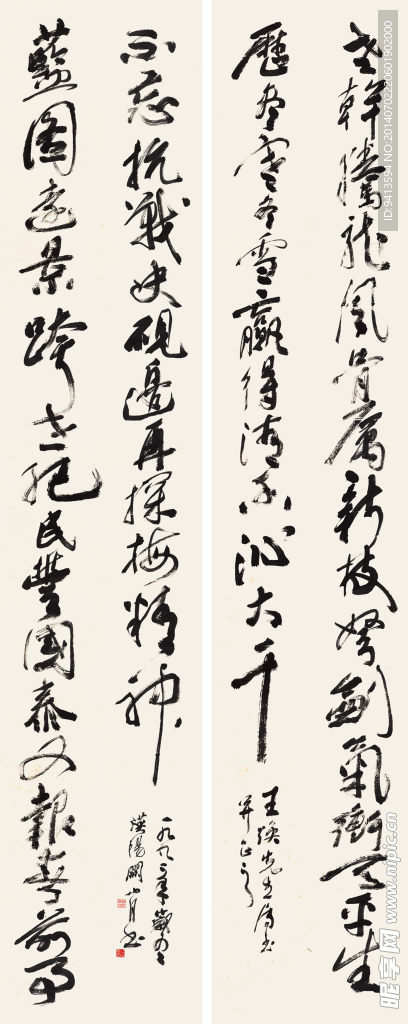 老幹騰龍風骨厲新枝劍氣衝天平生
歷盡寒冬雪贏得清香沁大千
王瑛先生
并正之
藍圖遠景跨世紀民豐國泰又報喜前事
不忘抗戰史硯邊再探梅精神
一九九年歲
漢陽月書
ID:9413594 NO:20140702220601902000
昵享网 www.nipic.cn